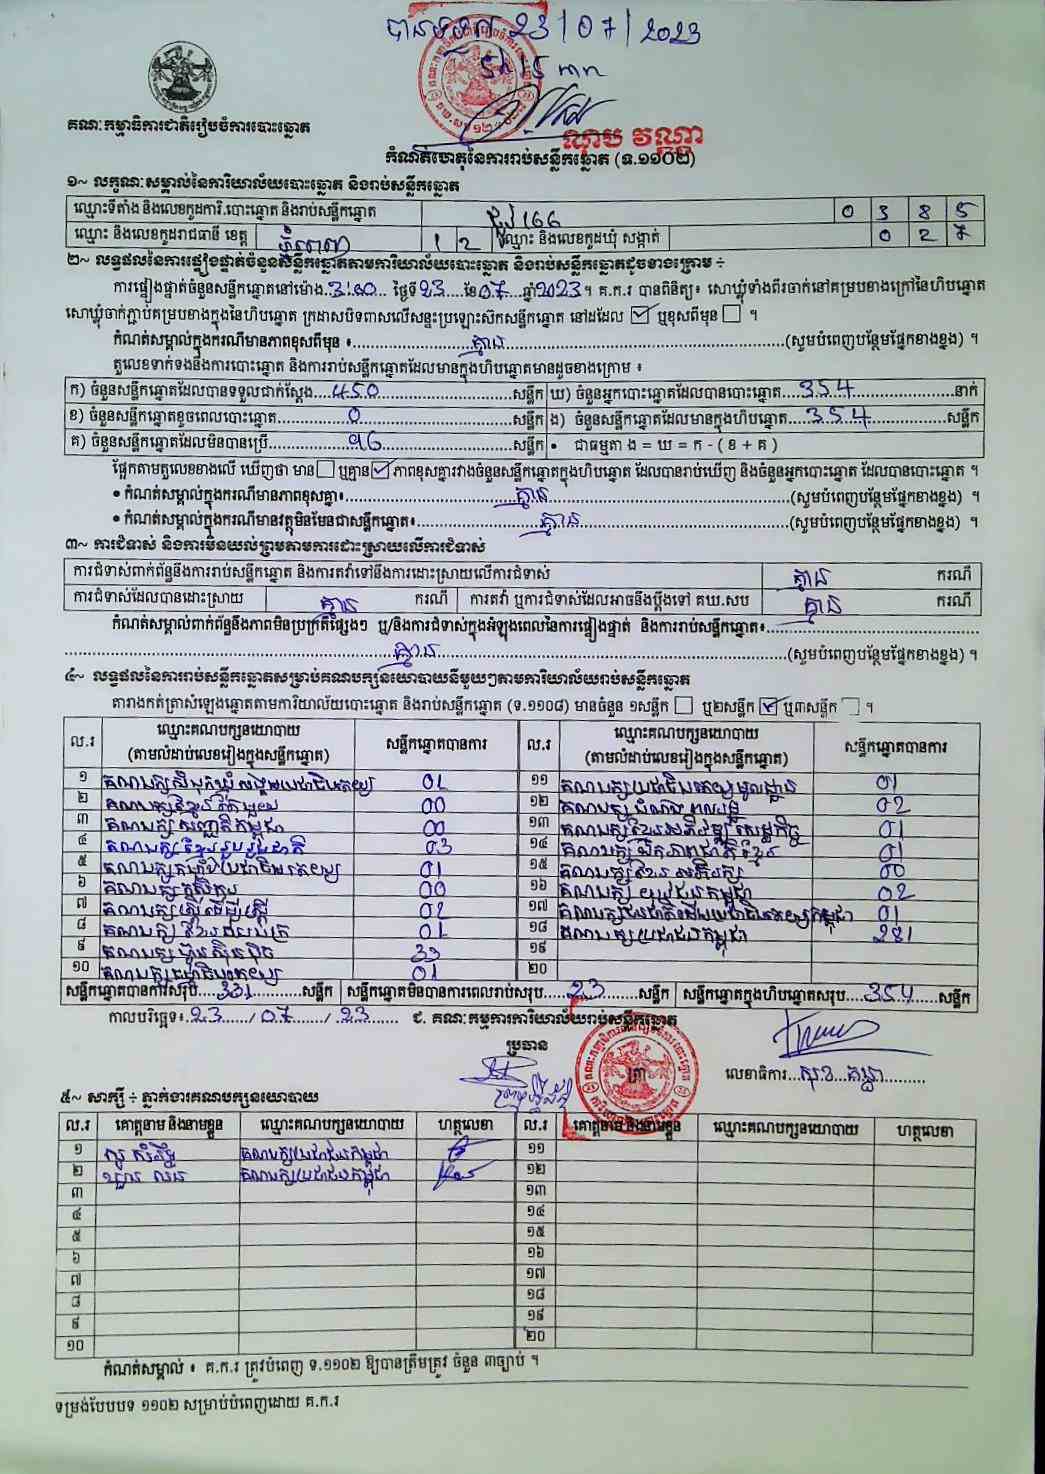 បានទទួល 23/07/2023
5h 15 នាទី
គណៈកម្មាធិការជាតិរៀបចំការបោះឆ្នោត
ណុប វណ្ណា
កំណត់ហេតុនៃការរាប់សន្លឹកឆ្នោត (ទ.១១០២)
១~ លក្ខណៈសម្គាល់នៃការិយាល័យបោះឆ្នោត និងរាប់សន្លឹកឆ្នោត
ឈ្មោះទីតាំង និងលេខកូដការិ.បោះឆ្នោត និងរាប់សន្លឹកឆ្នោត 166 0 3 8 5
ឈ្មោះ និងលេខកូដរាជធានី ខេត្ត ភ្នំពេញ 1 2 ឈ្មោះ និងលេខកូដឃុំ សង្កាត់ 0 2 7
២~ លទ្ធផលនៃការផ្ទៀងផ្ទាត់ចំនួនសន្លឹកឆ្នោតតាមការិយាល័យបោះឆ្នោត និងរាប់សន្លឹកឆ្នោតដូចខាងក្រោម ÷
ការផ្ទៀងផ្ទាត់ចំនួនសន្លឹកឆ្នោតនៅម៉ោង 3:00 ថ្ងៃទី 23 ខែ 07 ឆ្នាំ 2023 ។ គ.ក.រ បានពិនិត្យ៖ សោឃ្លុំទាំងពីរចាក់នៅគម្របខាងក្រៅនៃហិបឆ្នោត
សោឃ្លុំចាក់ភ្ជាប់គម្របខាងក្នុងនៃហិបឆ្នោត ក្រដាសបិទពាសលើសន្ទះប្រឡោះស៊កសន្លឹកឆ្នោត នៅដដែល ☑ ឬខុសពីមុន ☐ ។
កំណត់សម្គាល់ក្នុងករណីមានភាពខុសពីមុន ៖ គ្មាន (សូមបំពេញបន្ថែមផ្នែកខាងខ្នង) ។
តួលេខទាក់ទងនឹងការបោះឆ្នោត និងការរាប់សន្លឹកឆ្នោតដែលមានក្នុងហិបឆ្នោតមានដូចខាងក្រោម ៖
ក) ចំនួនសន្លឹកឆ្នោតដែលបានទទួលជាក់ស្តែង 450 សន្លឹក ឃ) ចំនួនអ្នកបោះឆ្នោតដែលបានបោះឆ្នោត 354 នាក់
ខ) ចំនួនសន្លឹកឆ្នោតខូចពេលបោះឆ្នោត 0 សន្លឹក ង) ចំនួនសន្លឹកឆ្នោតដែលមានក្នុងហិបឆ្នោត 354 សន្លឹក
គ) ចំនួនសន្លឹកឆ្នោតដែលមិនបានប្រើ 96 សន្លឹក • ជាធម្មតា ង = ឃ = ក - ( ខ + គ )
ផ្អែកតាមតួលេខខាងលើ ឃើញថា មាន ☐ ឬគ្មាន ☑ ភាពខុសគ្នារវាងចំនួនសន្លឹកឆ្នោតក្នុងហិបឆ្នោត ដែលបានរាប់ឃើញ និងចំនួនអ្នកបោះឆ្នោត ដែលបានបោះឆ្នោត ។
• កំណត់សម្គាល់ក្នុងករណីមានភាពខុសគ្នា៖ គ្មាន (សូមបំពេញបន្ថែមផ្នែកខាងខ្នង) ។
• កំណត់សម្គាល់ក្នុងករណីមានវត្ថុមិនមែនជាសន្លឹកឆ្នោត៖ គ្មាន (សូមបំពេញបន្ថែមផ្នែកខាងខ្នង) ។
៣~ ការជំទាស់ និងការមិនយល់ព្រមតាមការដោះស្រាយលើការជំទាស់
ការជំទាស់ពាក់ព័ន្ធនឹងការរាប់សន្លឹកឆ្នោត និងការតវ៉ាទៅនឹងការដោះស្រាយលើការជំទាស់ គ្មាន ករណី
ការជំទាស់ដែលបានដោះស្រាយ គ្មាន ករណី ការតវ៉ា ឬការជំទាស់ដែលអាចនឹងប្តឹងទៅ គឃ.សប គ្មាន ករណី
កំណត់សម្គាល់ពាក់ព័ន្ធនឹងភាពមិនប្រក្រតីផ្សេងៗ ឬ/និងការជំទាស់ក្នុងអំឡុងពេលនៃការផ្ទៀងផ្ទាត់ និងការរាប់សន្លឹកឆ្នោត៖
គ្មាន (សូមបំពេញបន្ថែមផ្នែកខាងខ្នង) ។
៤~ លទ្ធផលនៃការរាប់សន្លឹកឆ្នោតសម្រាប់គណបក្សនយោបាយនីមួយៗតាមការិយាល័យរាប់សន្លឹកឆ្នោត
តារាងកត់ត្រាសំឡេងឆ្នោតតាមការិយាល័យបោះឆ្នោត និងរាប់សន្លឹកឆ្នោត (ទ.១១០៨) មានចំនួន ១សន្លឹក ☐ ឬ២សន្លឹក ☑ ឬ៣សន្លឹក ☐ ។
ល.រ ឈ្មោះគណបក្សនយោបាយ (តាមលំដាប់លេខរៀងក្នុងសន្លឹកឆ្នោត) សន្លឹកឆ្នោតបានការ ល.រ ឈ្មោះគណបក្សនយោបាយ (តាមលំដាប់លេខរៀងក្នុងសន្លឹកឆ្នោត) សន្លឹកឆ្នោតបានការ
១ គណបក្សសំបុកឃ្មុំសង្គមប្រជាធិបតេយ្យ 01 ១១ គណបក្សប្រជាធិបតេយ្យមូលដ្ឋាន 01
២ គណបក្សខ្មែរតែមួយ 00 ១២ គណបក្សដំណាងពលរដ្ឋ 02
៣ គណបក្សសញ្ជាតិកម្ពុជា 00 ១៣ គណបក្សខ្មែរអភិវឌ្ឍន៍សេដ្ឋកិច្ច 01
៤ គណបក្សខ្មែររួបរួមជាតិ 03 ១៤ គណបក្សឯកភាពជាតិខ្មែរ 01
៥ គណបក្សកម្លាំងប្រជាធិបតេយ្យ 01 ១៥ គណបក្សខ្មែរអភិរក្ស 00
៦ គណបក្សកសិករ 00 ១៦ គណបក្សយុវជនកម្ពុជា 02
៧ គណបក្សស្ត្រីដើម្បីស្ត្រី 02 ១៧ គណបក្សជនជាតិដើមប្រជាធិបតេយ្យកម្ពុជា 01
៨ គណបក្សខ្មែរឈប់ក្រ 01 ១៨ គណបក្សប្រជាជនកម្ពុជា 281
៩ គណបក្សហ៊្វុនស៊ិនប៉ិច 33 ១៩
១០ គណបក្សធម្មាធិបតេយ្យ 01 ២០
សន្លឹកឆ្នោតបានការសរុប 331 សន្លឹក សន្លឹកឆ្នោតមិនបានការពេលរាប់សរុប 23 សន្លឹក សន្លឹកឆ្នោតក្នុងហិបឆ្នោតសរុប 354 សន្លឹក
កាលបរិច្ឆេទ៖ 23 / 07 / 23 ជ. គណៈកម្មការការិយាល័យរាប់សន្លឹកឆ្នោត
ប្រធាន
ត្រា
លេខាធិការ សុខ គន្ធា
៥~ សាក្សី ÷ ភ្នាក់ងារគណបក្សនយោបាយ
ល.រ គោត្តនាម និងនាមខ្លួន ឈ្មោះគណបក្សនយោបាយ ហត្ថលេខា ល.រ គោត្តនាម និងនាមខ្លួន ឈ្មោះគណបក្សនយោបាយ ហត្ថលេខា
១ គណបក្សប្រជាជនកម្ពុជា ១១
២ គណបក្សប្រជាជនកម្ពុជា ១២
៣ ១៣
៤ ១៤
៥ ១៥
៦ ១៦
៧ ១៧
៨ ១៨
៩ ១៩
១០ ២០
កំណត់សម្គាល់ ៖ គ.ក.រ ត្រូវបំពេញ ទ.១១០២ ឱ្យបានត្រឹមត្រូវ ចំនួន ៣ច្បាប់ ។
ទម្រង់បែបបទ ១១០២ សម្រាប់បំពេញដោយ គ.ក.រ